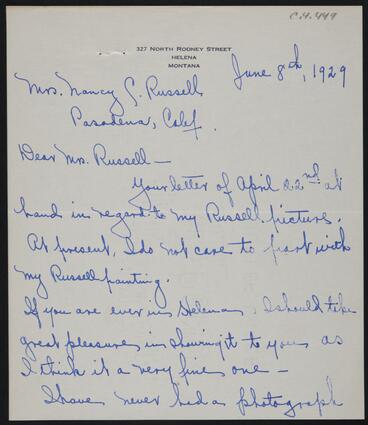 C.4.449
327 North Rodney Street
Helena
Montana
June 8th, 1929
Mrs. Nancy C. Russell
Pasadena, Calif.
Dear Mrs. Russell—
Your letter of April 22nd at
hand in regard to my Russell picture.
At present, I do not care to part with
my Russell painting.
If you are ever in Helena, I should take
great pleasure in showing it to you as
I think it a very fine one—
I have never had a photograph